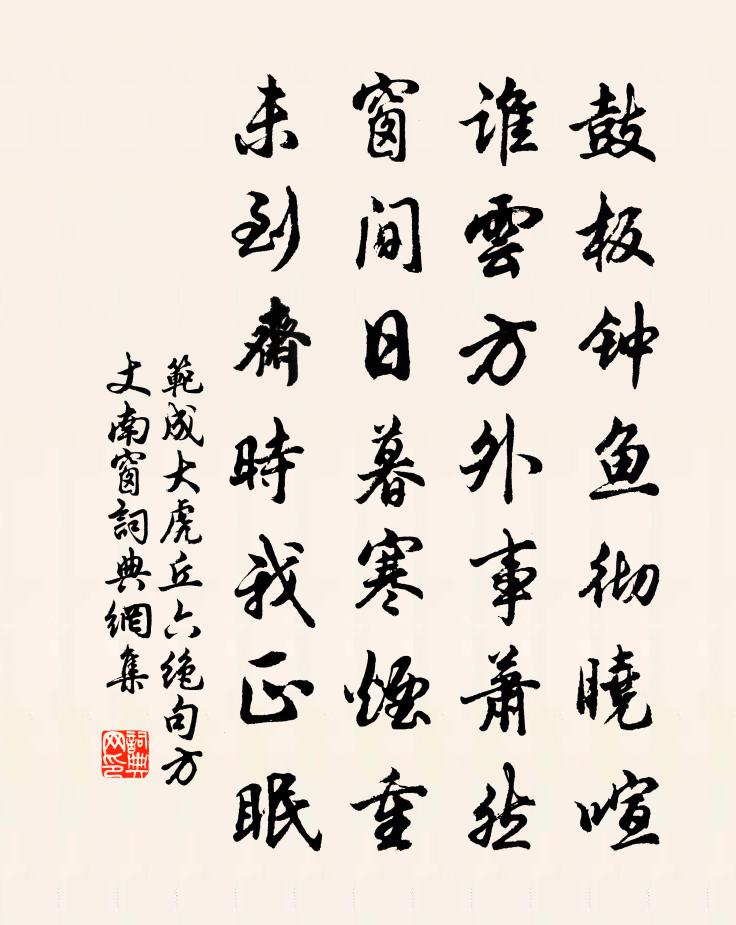 鼓板钟鱼彻曉喧
谁雲方外事蕭然
窗间日暮寒煙重
未到齋時我正眠
範成大虎丘六绝句方
丈南窗詞典網集
詞典网印